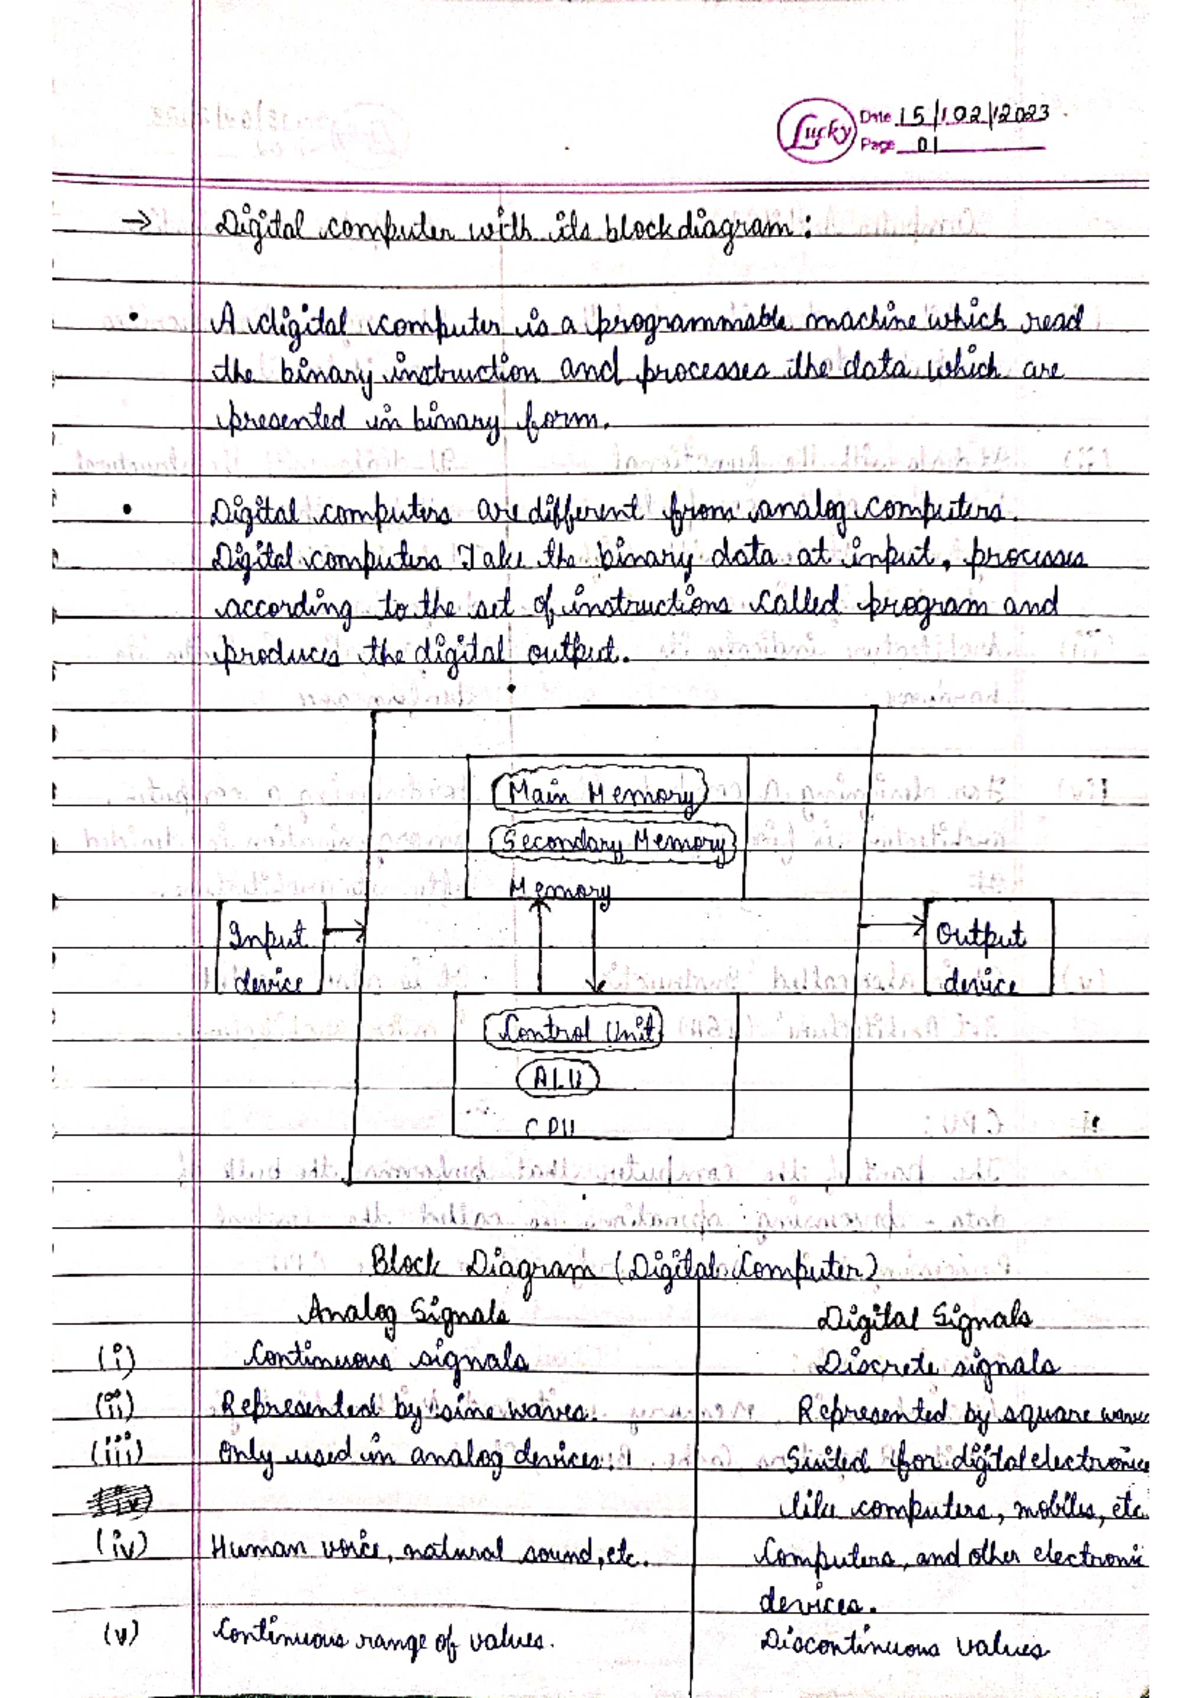 Lucky
Date 15/02/2023
Page 01
→ Digital computer with its block diagram:
• A digital computer is a programmable machine which read
the binary instruction and processes the data which are
presented in binary form.
• Digital computers are different from analog computers.
Digital computers Take the binary data at input, processes
according to the set of instructions called program and
produces the digital output.
Main Memory
Secondary Memory
Memory
Input
device
Output
device
Control Unit
ALU
CPU
Block Diagram (Digital Computer)
Analog Signals Digital Signals
(i) Continuous signals Discrete signals
(ii) Represented by sine waves. Represented by square waves
(iii) Only used in analog devices. Suited for digital electronics
like computers, mobiles, etc.
(iv) Human voice, natural sound, etc. Computers, and other electronic
devices.
(v) Continuous range of values. Discontinuous values